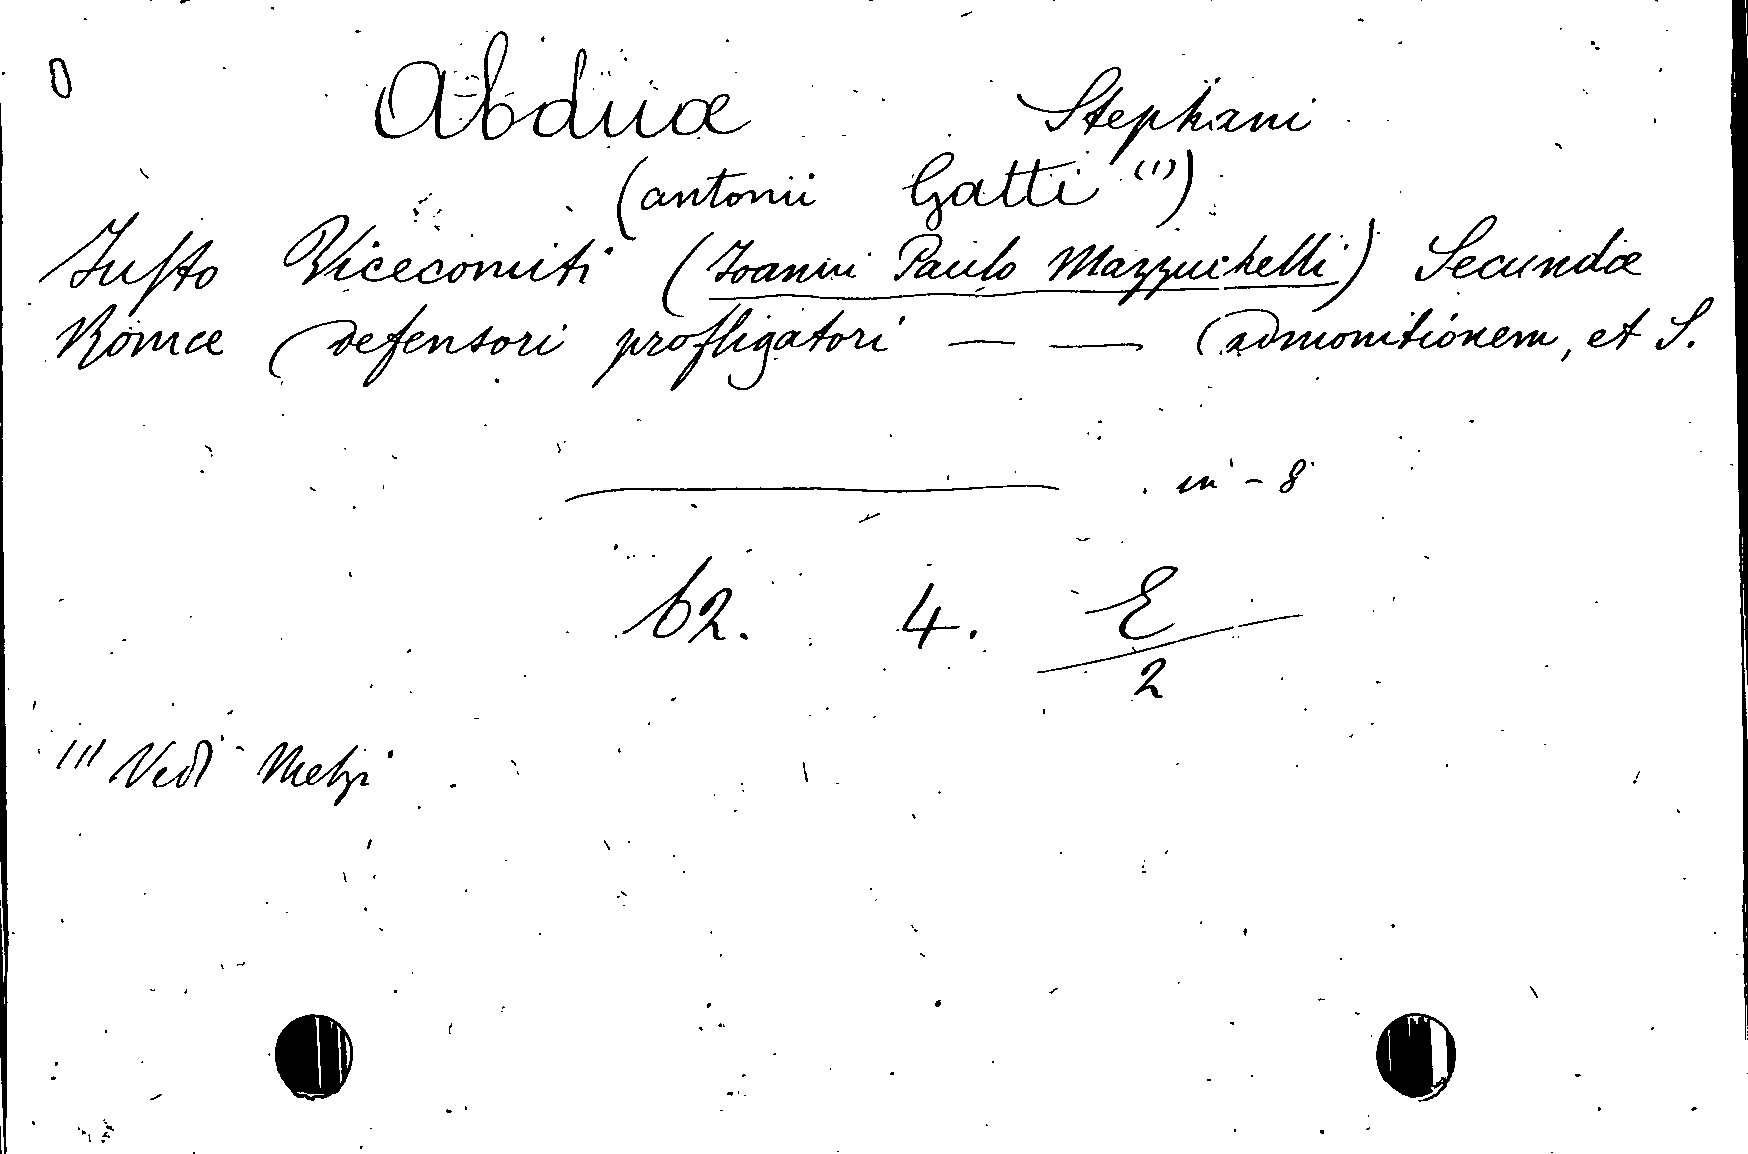 0
Abduæ Stephani
(Antonii Gatti (1))
Justo Vicecomiti (Joanni Paulo Mazzuchelli) Secundæ
Romæ defensori profligatori — — admonitionem, et S.
in - 8
62. 4. E/2
(1) Vedi Melzi